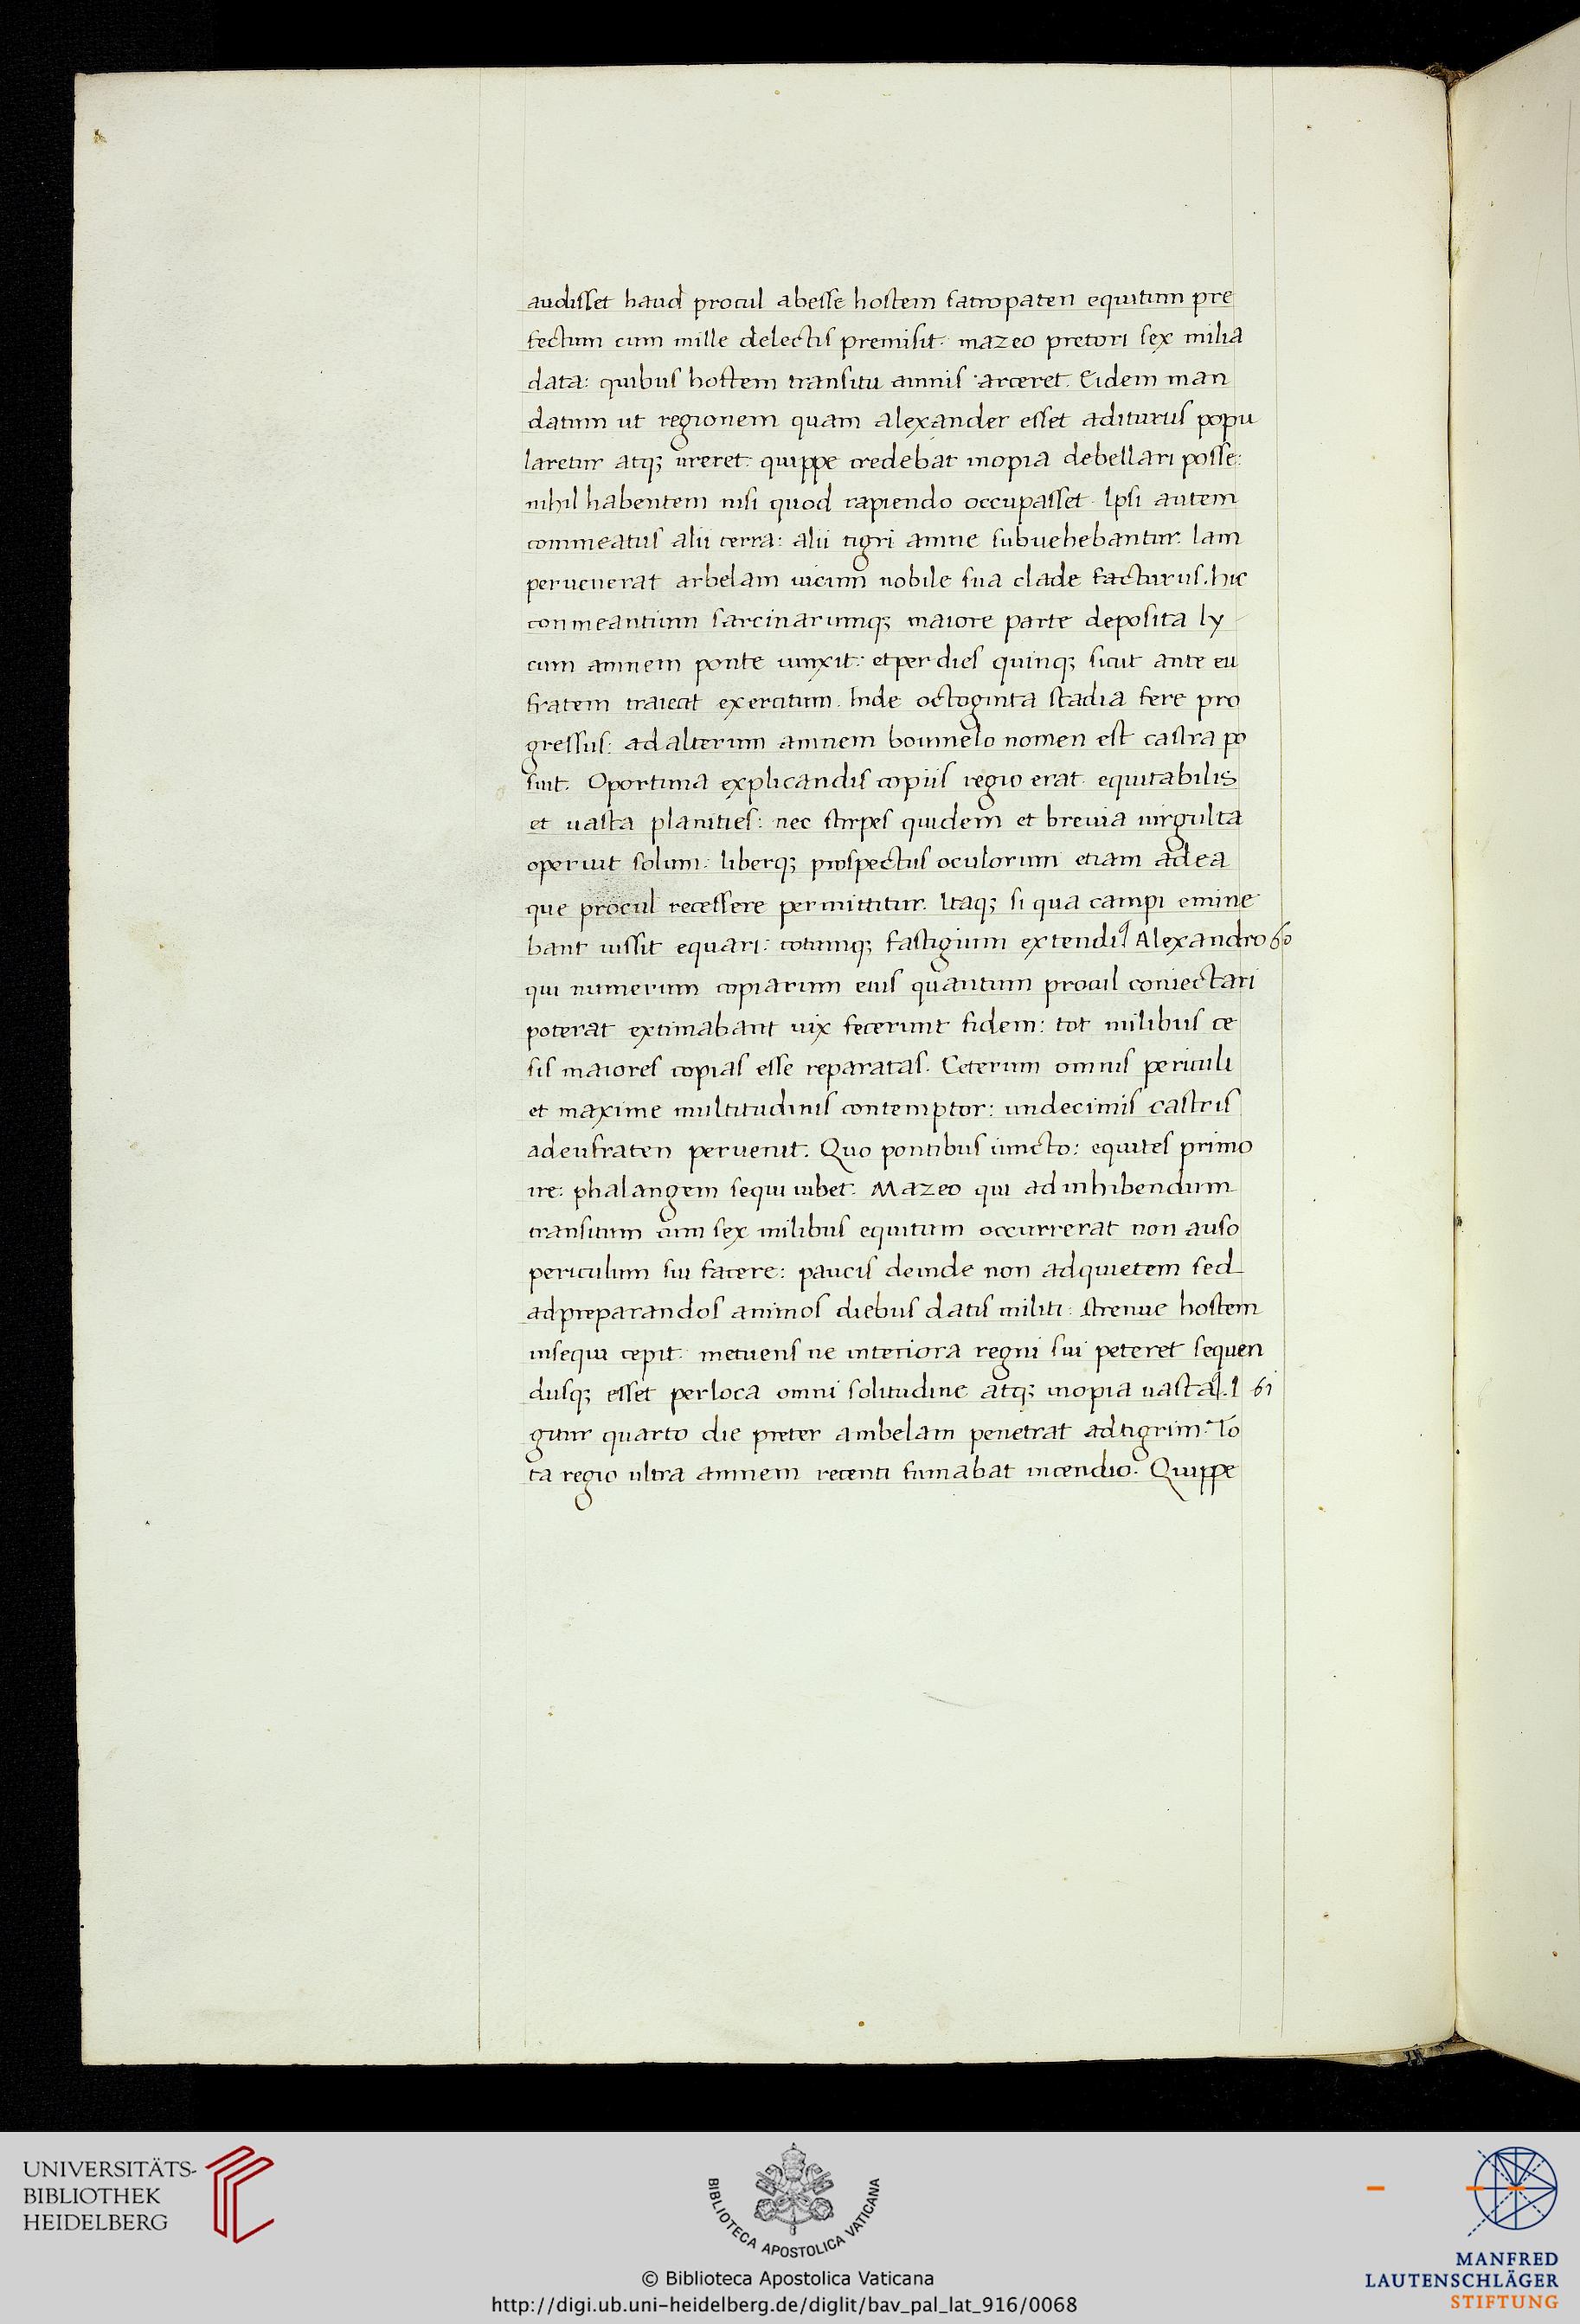 audisset haud procul abesse hostem satropaten equitum pre
fectum cum mille delectis premisit. mazeo pretori sex milia
data: quibus hostem transitu amnis arceret. Eidem man
datum ut regionem quam alexander esset aditurus popu
laretur atq; ureret. quippe credebat inopia debellari posse:
nihil habentem nisi quod rapiendo occupasset. Ipsi autem
commeatus alii terra: alii tigri amne subuehebantur. Iam
peruenerat arbelam uicum nobile sua clade facturus. hic
conmeantium sarcinarumq; maiore parte deposita ly
cum amnem ponte iunxit: et per dies quinq; sicut ante eu
fratem traiecit exercitum. Inde octoginta stadia fere pro
gressus: ad alterum amnem boumelo nomen est castra po
suit. Oportuna explicandis copiis regio erat. equitabilis
et uasta planities: nec stirpes quidem et breuia uirgulta
operuit solum: liberq; prospectus oculorum etiam ad ea
que procul recessere permittitur. Itaq; si qua campi emine
bant iussit equari: totumq; fastigium extendi. Alexandro 60
qui numerum copiarum eius quantum procul coniectari
poterat extimabant uix fecerunt fidem: tot milibus ce
sis maiores copias esse reparatas. Ceterum omnis periculi
et maxime multitudinis contemptor: undecimis castris
ad eufraten peruenit. Quo pontibus iuncto: equites primo
ire: phalangem sequi iubet. Mazeo qui ad inhibendum
transitum cum sex milibus equitum occurrerat non auso
periculum sui facere: paucis deinde non ad quietem sed
ad preparandos animos diebus datis militi: strenue hostem
insequi cepit. metuens ne interiora regni sui peteret sequen
dusq; esset per loca omni solitudine atq; inopia uasta. I 61
gitur quarto die preter ambelam penetrat ad tigrim. To
ta regio ultra amnem recenti fumabat incendio. Quippe
UNIVERSITÄTS-
BIBLIOTHEK
HEIDELBERG
BIBLIOTECA APOSTOLICA VATICANA
© Biblioteca Apostolica Vaticana
http://digi.ub.uni-heidelberg.de/diglit/bav_pal_lat_916/0068
MANFRED
LAUTENSCHLÄGER
STIFTUNG